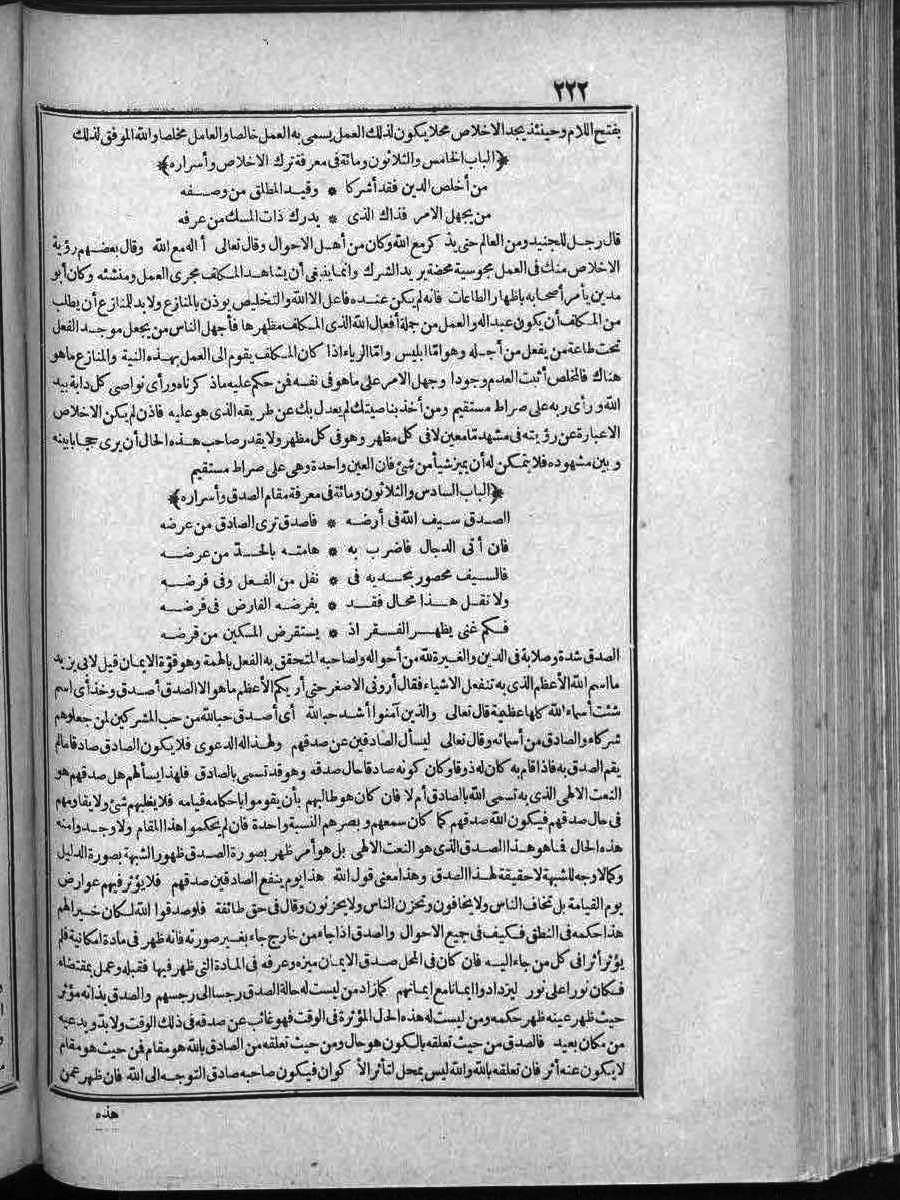 ٢٢٢
بفتح اللام وحينئذ يجد الاخلاص محلا يكون لذلك العمل يسمى به العمل خالصا والعامل مخلصا والله الموفق لذلك
﴿الباب الخامس والثلاثون ومائة فى معرفة ترك الاخلاص وأسراره﴾
من أخلص الدين فقد أشركا * وقيد المطلق من وصفه
من يجهل الامر فذاك الذى * يدرك ذات المسك من عرفه
قال رجل للجنيد ومن العالم حتى يذكر مع الله وكان من أهل الاحوال وقال تعالى أاله مع الله وقال بعضهم رؤية
الاخلاص منك فى العمل مجوسية محضة يريد الشرك وانما ينبغى أن يشاهد المكلف مجرى العمل ومنشئه وكان أبو
مدين يأمر أصحابه باظهار الطاعات فانه لم يكن عنده فاعل الا الله والتخليص يوذن بالمنازع ولا بد للمنازع أن يطلب
من المكلف أن يكون عبدا له والعمل من جملة أفعال الله الذى المكلف مظهرها فأجهل الناس من يجعل موجد الفعل
تحت طاعة من يفعل من أجله وهو امّا ابليس وامّا الرياء اذا كان المكلف يقوم الى العمل بهذه النية والمنازع ما هو
هناك فالمخلص أثبت العدم وجودا وجهل الامر على ما هو فى نفسه فن حكم عليه ما ذكرناه ورأى نواصى كل دابة بيد
الله ورأى ربه على صراط مستقيم ومن أخذ بناصيتك لم يعدل بك عن طريقه الذى هو عليه فاذن لم يكن الاخلاص
الا عبارة عن رؤيته فى مشهد مّا معين لا فى كل مظهر وهو فى كل مظهر ولا يقدر صاحب هذه الحال أن يرى حجابا بينه
وبين مشهوده فلا يتمكن له أن يميز شيأ من شئ فان العين واحدة وهى على صراط مستقيم
﴿الباب السادس والثلاثون ومائة فى معرفة مقام الصدق وأسراره﴾
الصدق سيف الله فى أرضه * فاصدق ترى الصادق من عرضه
فان أتى الدجال فاضرب به * هامته بالحدّ من عرضه
فالسيف محصور بحديه فى * نفل من الفعل وفى فرضه
ولا تقل هذا محال فقد * يفرضه الفارض فى فرضه
فكم غنى يظهر الفقر اذ * يستقرض المسكين من قرضه
الصدق شدة وصلابة فى الدين والغيرة لله من أحواله ولصاحبه المتحقق به الفعل بالهمة وهو قوّة الايمان قيل لابى يزيد
ما اسم الله الأعظم الذى به تنفعل الاشياء فقال أرونى الاصغر حتى أريكم الأعظم ما هو الا الصدق أصدق وخذ أى اسم
شئت أسماء الله كلها عظيمة قال تعالى والذين آمنوا أشد حبا لله أى أصدق حبا لله من حب المشركين لمن جعلوهم
شركاء والصادق من أسمائه وقال تعالى ليسأل الصادقين عن صدقهم ولهذا له الدعوى فلا يكون الصادق صادقا ما لم
يقم الصدق به فاذا قام به كان له ذوقا وكان كونه صادقا حال صدقه وهو قد تسمى بالصادق فلهذا يسألهم هل صدقهم هو
النعت الالهى الذى به تسمى الله بالصادق أم لا فان كان هو طالبهم بأن يقوموا باحكامه قيامه فلا يغلبهم شئ ولا يقاومهم
فى حال صدقهم فيكون الله صدقهم كما كان سمعهم وبصرهم النسبة واحدة فان لم يحكموا هذا المقام ولا وجدوا منه
هذه الحال فما هو هذا الصدق الذى هو النعت الالهى بل هو أمر ظهر بصورة الصدق ظهور الشبهة بصورة الدليل
وكما لا وجه للشبهة لا حقيقة لهذا الصدق وهذا معنى قول الله هذا يوم ينفع الصادقين صدقهم فلا يؤثر فيهم عوارض
يوم القيامة بل تخاف الناس ولا يخافون وتحزن الناس ولا يحزنون وقال فى حق طائفة فلو صدقوا الله لكان خيرا لهم
هذا حكمه فى النطق فكيف فى جميع الاحوال والصدق اذا جاء من خارج جاء بغير صورته فانه ظهر فى مادة امكانية فلم
يؤثر أثرا فى كل من جاء اليه فان كان فى المحل صدق الايمان ميزه وعرفه فى المادة التى ظهر فيها فقبله وعمل بمقتضاه
فكان نورا على نور ليزدادوا ايمانا مع ايمانهم كما زاد من ليست له حالة الصدق رجسا الى رجسهم والصدق بذاته مؤثر
حيث ظهر عينه ظهر حكمه ومن ليست له هذه الحال المؤثرة فى الوقت فهو غائب عن صدقه فى ذلك الوقت ولا بدّ ويدعيه
من مكان بعيد فالصدق من حيث تعلقه بالكون هو حال ومن حيث تعلقه من الصادق بالله هو مقام فن حيث هو مقام
لا يكون عنه أثر فان تعلقه بالله والله ليس بمحل لتأثر الأكوان فيكون صاحبه صادق التوجه الى الله فان ظهر عمن
هذه